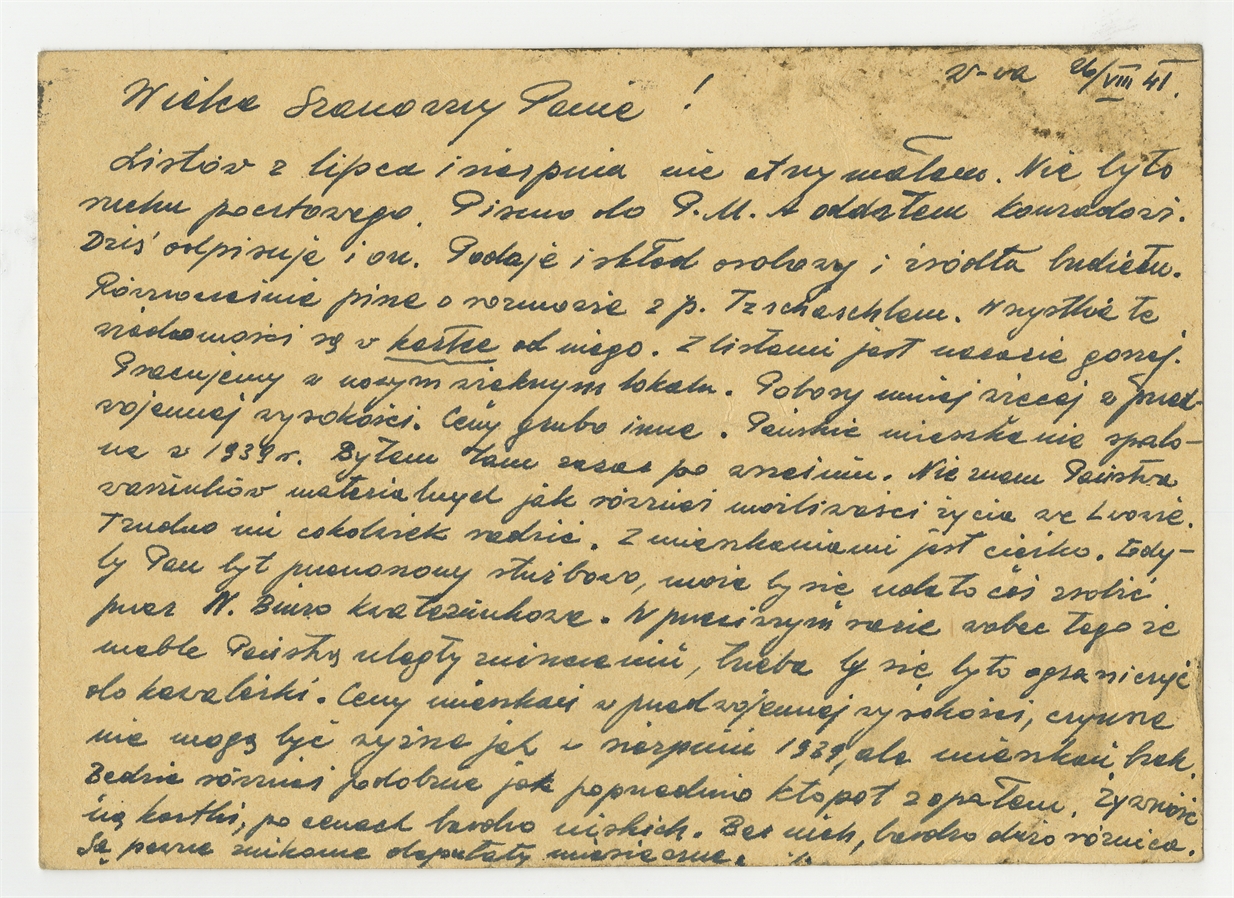 W-wa 26/VIII 41.
Wielce Szanowny Panie !
Listów z lipca i sierpnia nie otrzymałem. Nie było
ruchu pocztowego. Pismo do P.M.A oddałem Konradowi.
Dziś odpisuje i on. Podaje i skład osobowy i źródła budżetu.
Równocześnie pisze o rozmowie z p. Tzschaschlem. Wszystkie te
wiadomości są w kartce od niego. Z listami jest na razie gorzej.
Pracujemy w nowym pięknym lokalu. Pobory mniej więcej w przed-
wojennej wysokości. Ceny grubo inne. Pańskie mieszkanie spalo-
ne w 1939 r. Byłem tam zaraz po wrześniu. Nie znam Państwa
warunków materialnych jak również możliwości życia we Lwowie.
Trudno mi cokolwiek radzić. Z mieszkaniami jest ciężko. Gdy-
by Pan był przenoszony służbowo, może by się udało coś zrobić
przez N. Biuro Kwaterunkowe. W przeciwnym razie wobec tego że
meble Państwa uległy zniszczeniu, trzeba by się było ograniczyć
do kawalerki. Ceny mieszkań w przedwojennej wysokości, czynsze
nie mogą być wyższe jak w sierpniu 1939, ale mieszkań brak.
Będzie również podobnie jak poprzednio kłopot z opałem. Żywność
na kartki, po cenach bardzo niskich. Bez nich, bardzo duża różnica.
Są pewne znikome deputaty miesięczne. ./.